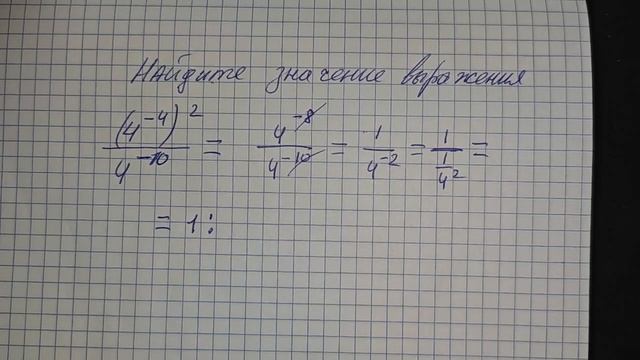 Найдите значение выражения
(4^{-4})^2 / 4^{-10} = 4^{-8} / 4^{-10} = 1 / 4^{-2} = 1 / (1 / 4^2) =
= 1 :